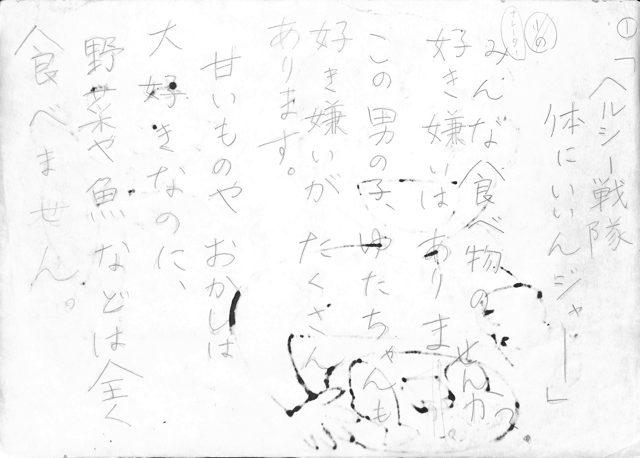 ①
「ヘルシー戦隊
体にいいんジャー」
みんな食べ物の
好き嫌いはありませんか。
この男の子、ゆたちゃんも
好き嫌いが たくさん
あります。
甘いものや おかしは
大好きなのに、
野菜や魚などは全く
食べません。